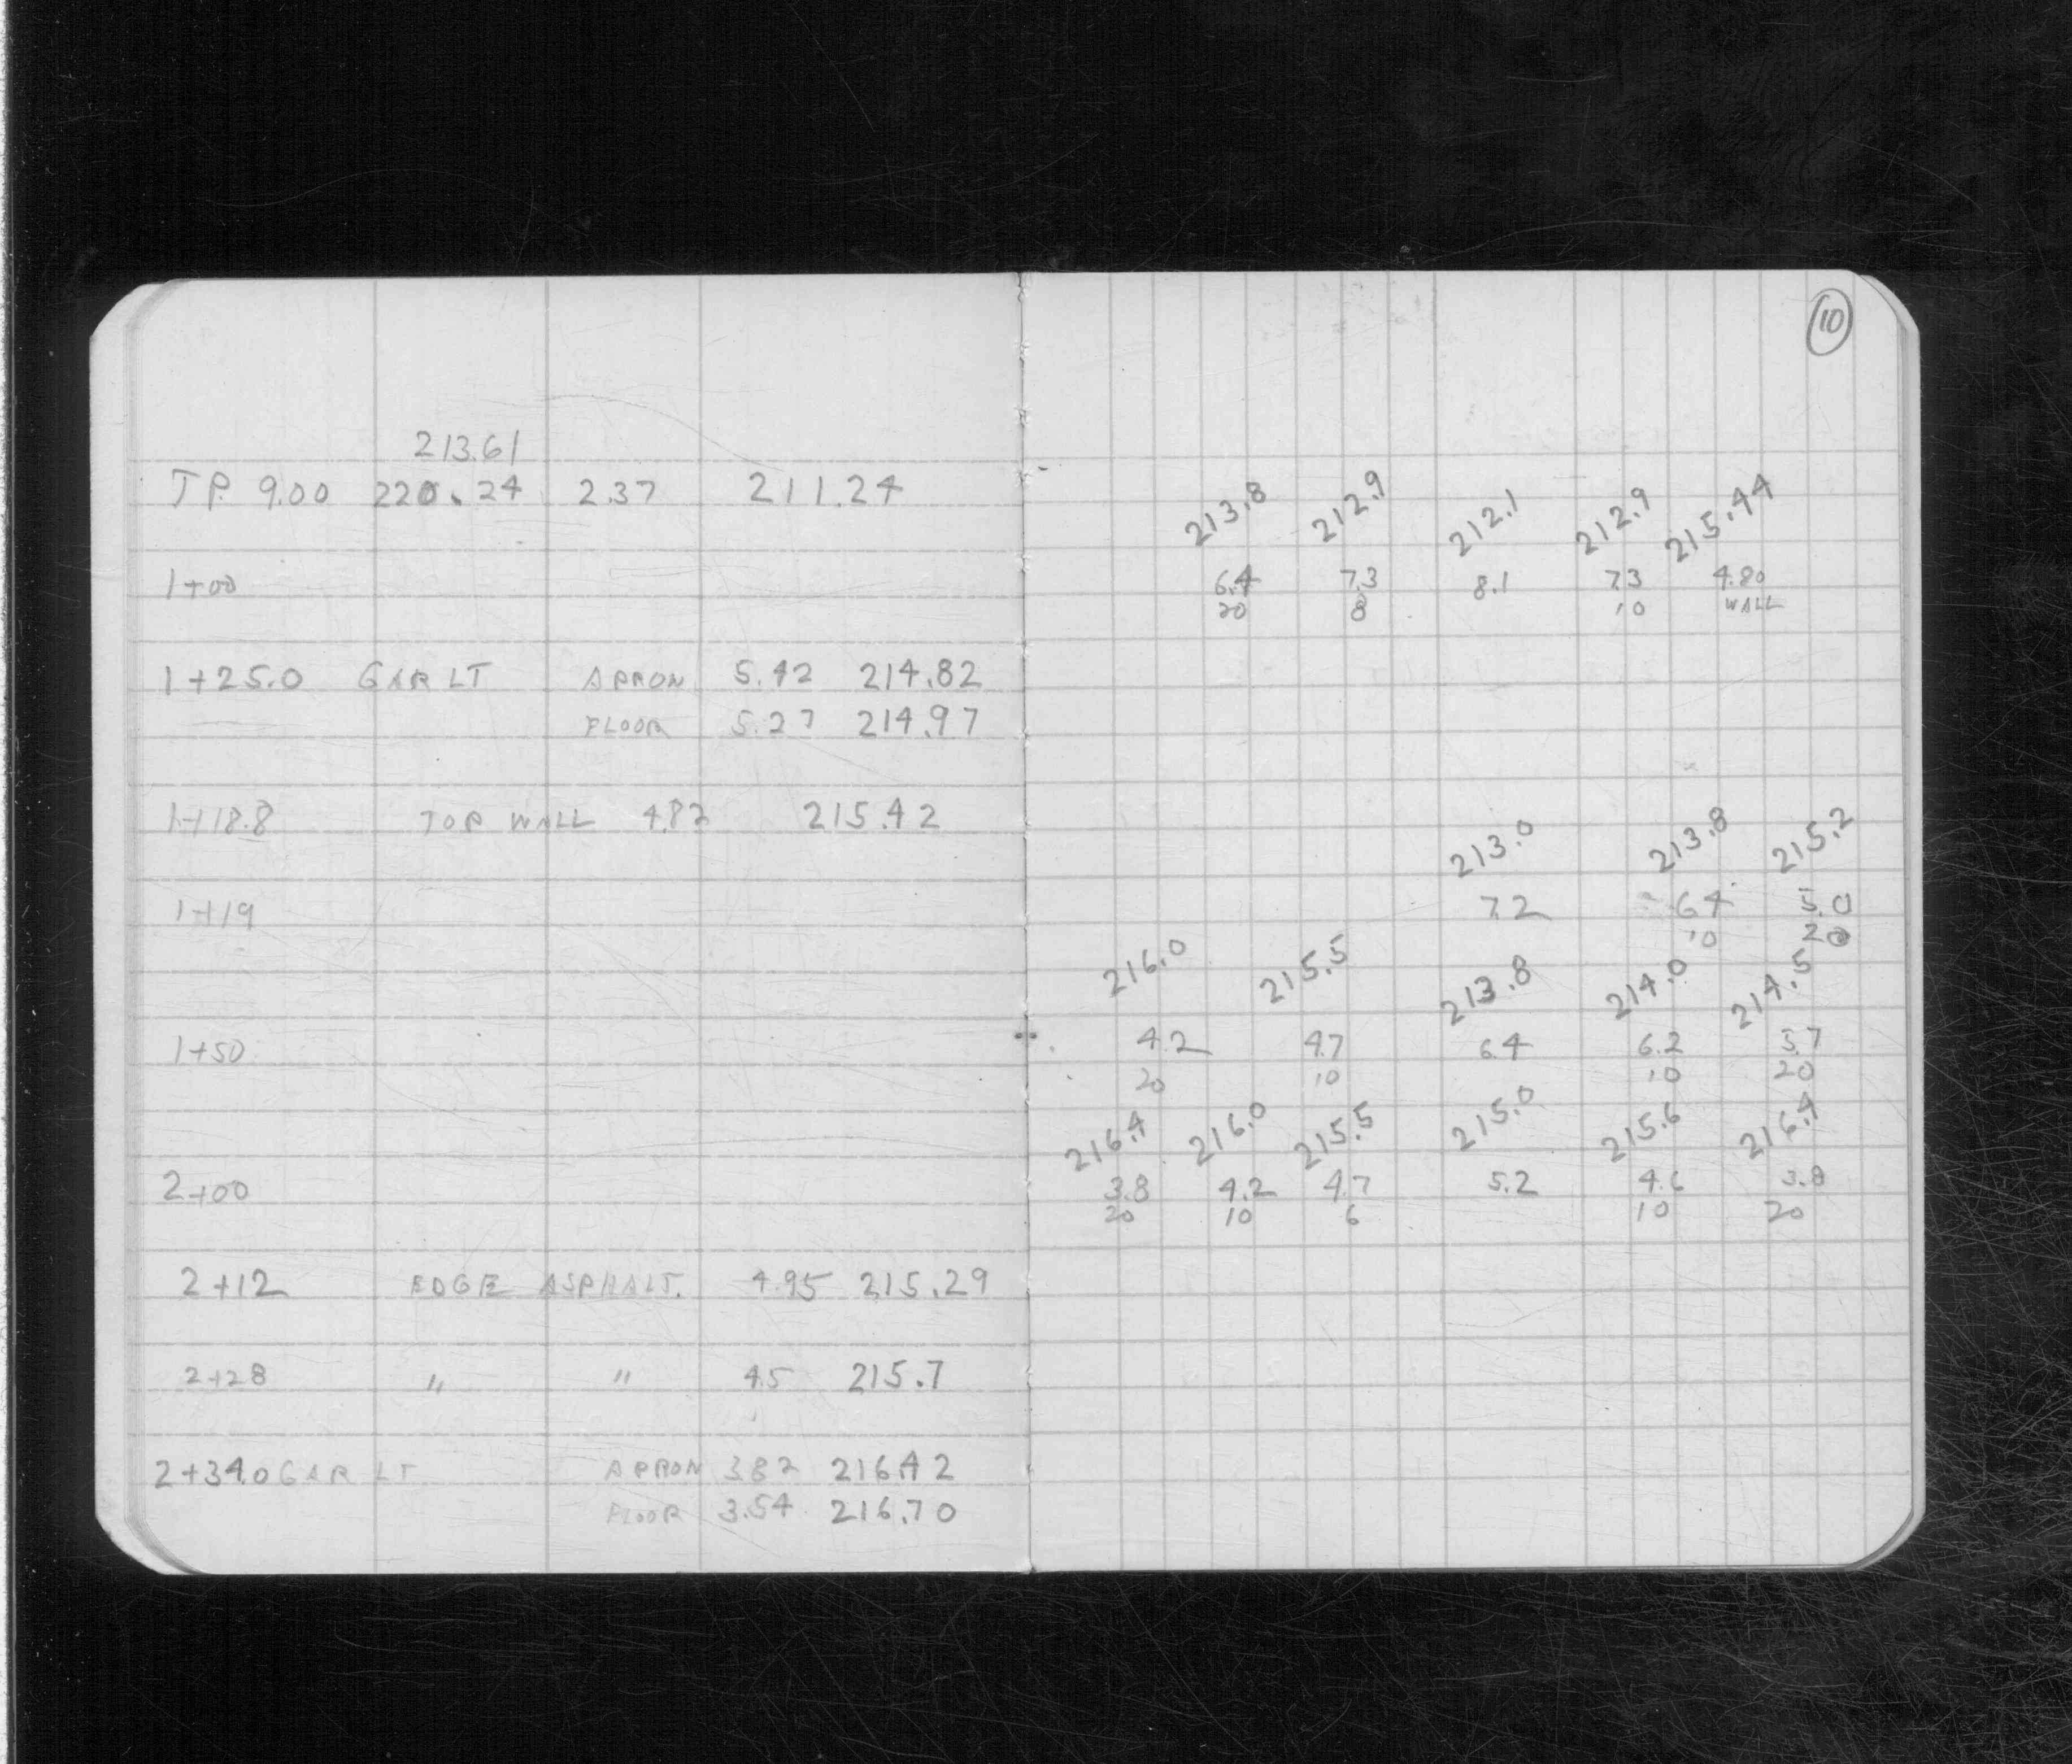 10
213.61
TP. 9.00 220.24 2.37 211.24
213.8 212.9 212.1 212.9 215.44
1+00 6.4 7.3 8.1 7.3 4.80
20 8 10 WALL
1+25.0 GAR LT APRON 5.42 214.82
FLOOR 5.27 214.97
1+18.8 TOP WALL 4.82 215.42
213.0 213.8 215.2
1+19 7.2 6.4 5.0
10 20
216.0 215.5 213.8 214.0 214.5
1+50 4.2 4.7 6.4 6.2 5.7
20 10 10 20
216.4 216.0 215.5 215.0 215.6 216.4
2+00 3.8 4.2 4.7 5.2 4.6 3.8
20 10 6 10 20
2+12 EDGE ASPHALT. 4.95 215.29
2+28 " " 4.5 215.7
2+34.0 GAR LT APRON 3.82 216.42
FLOOR 3.54 216.70